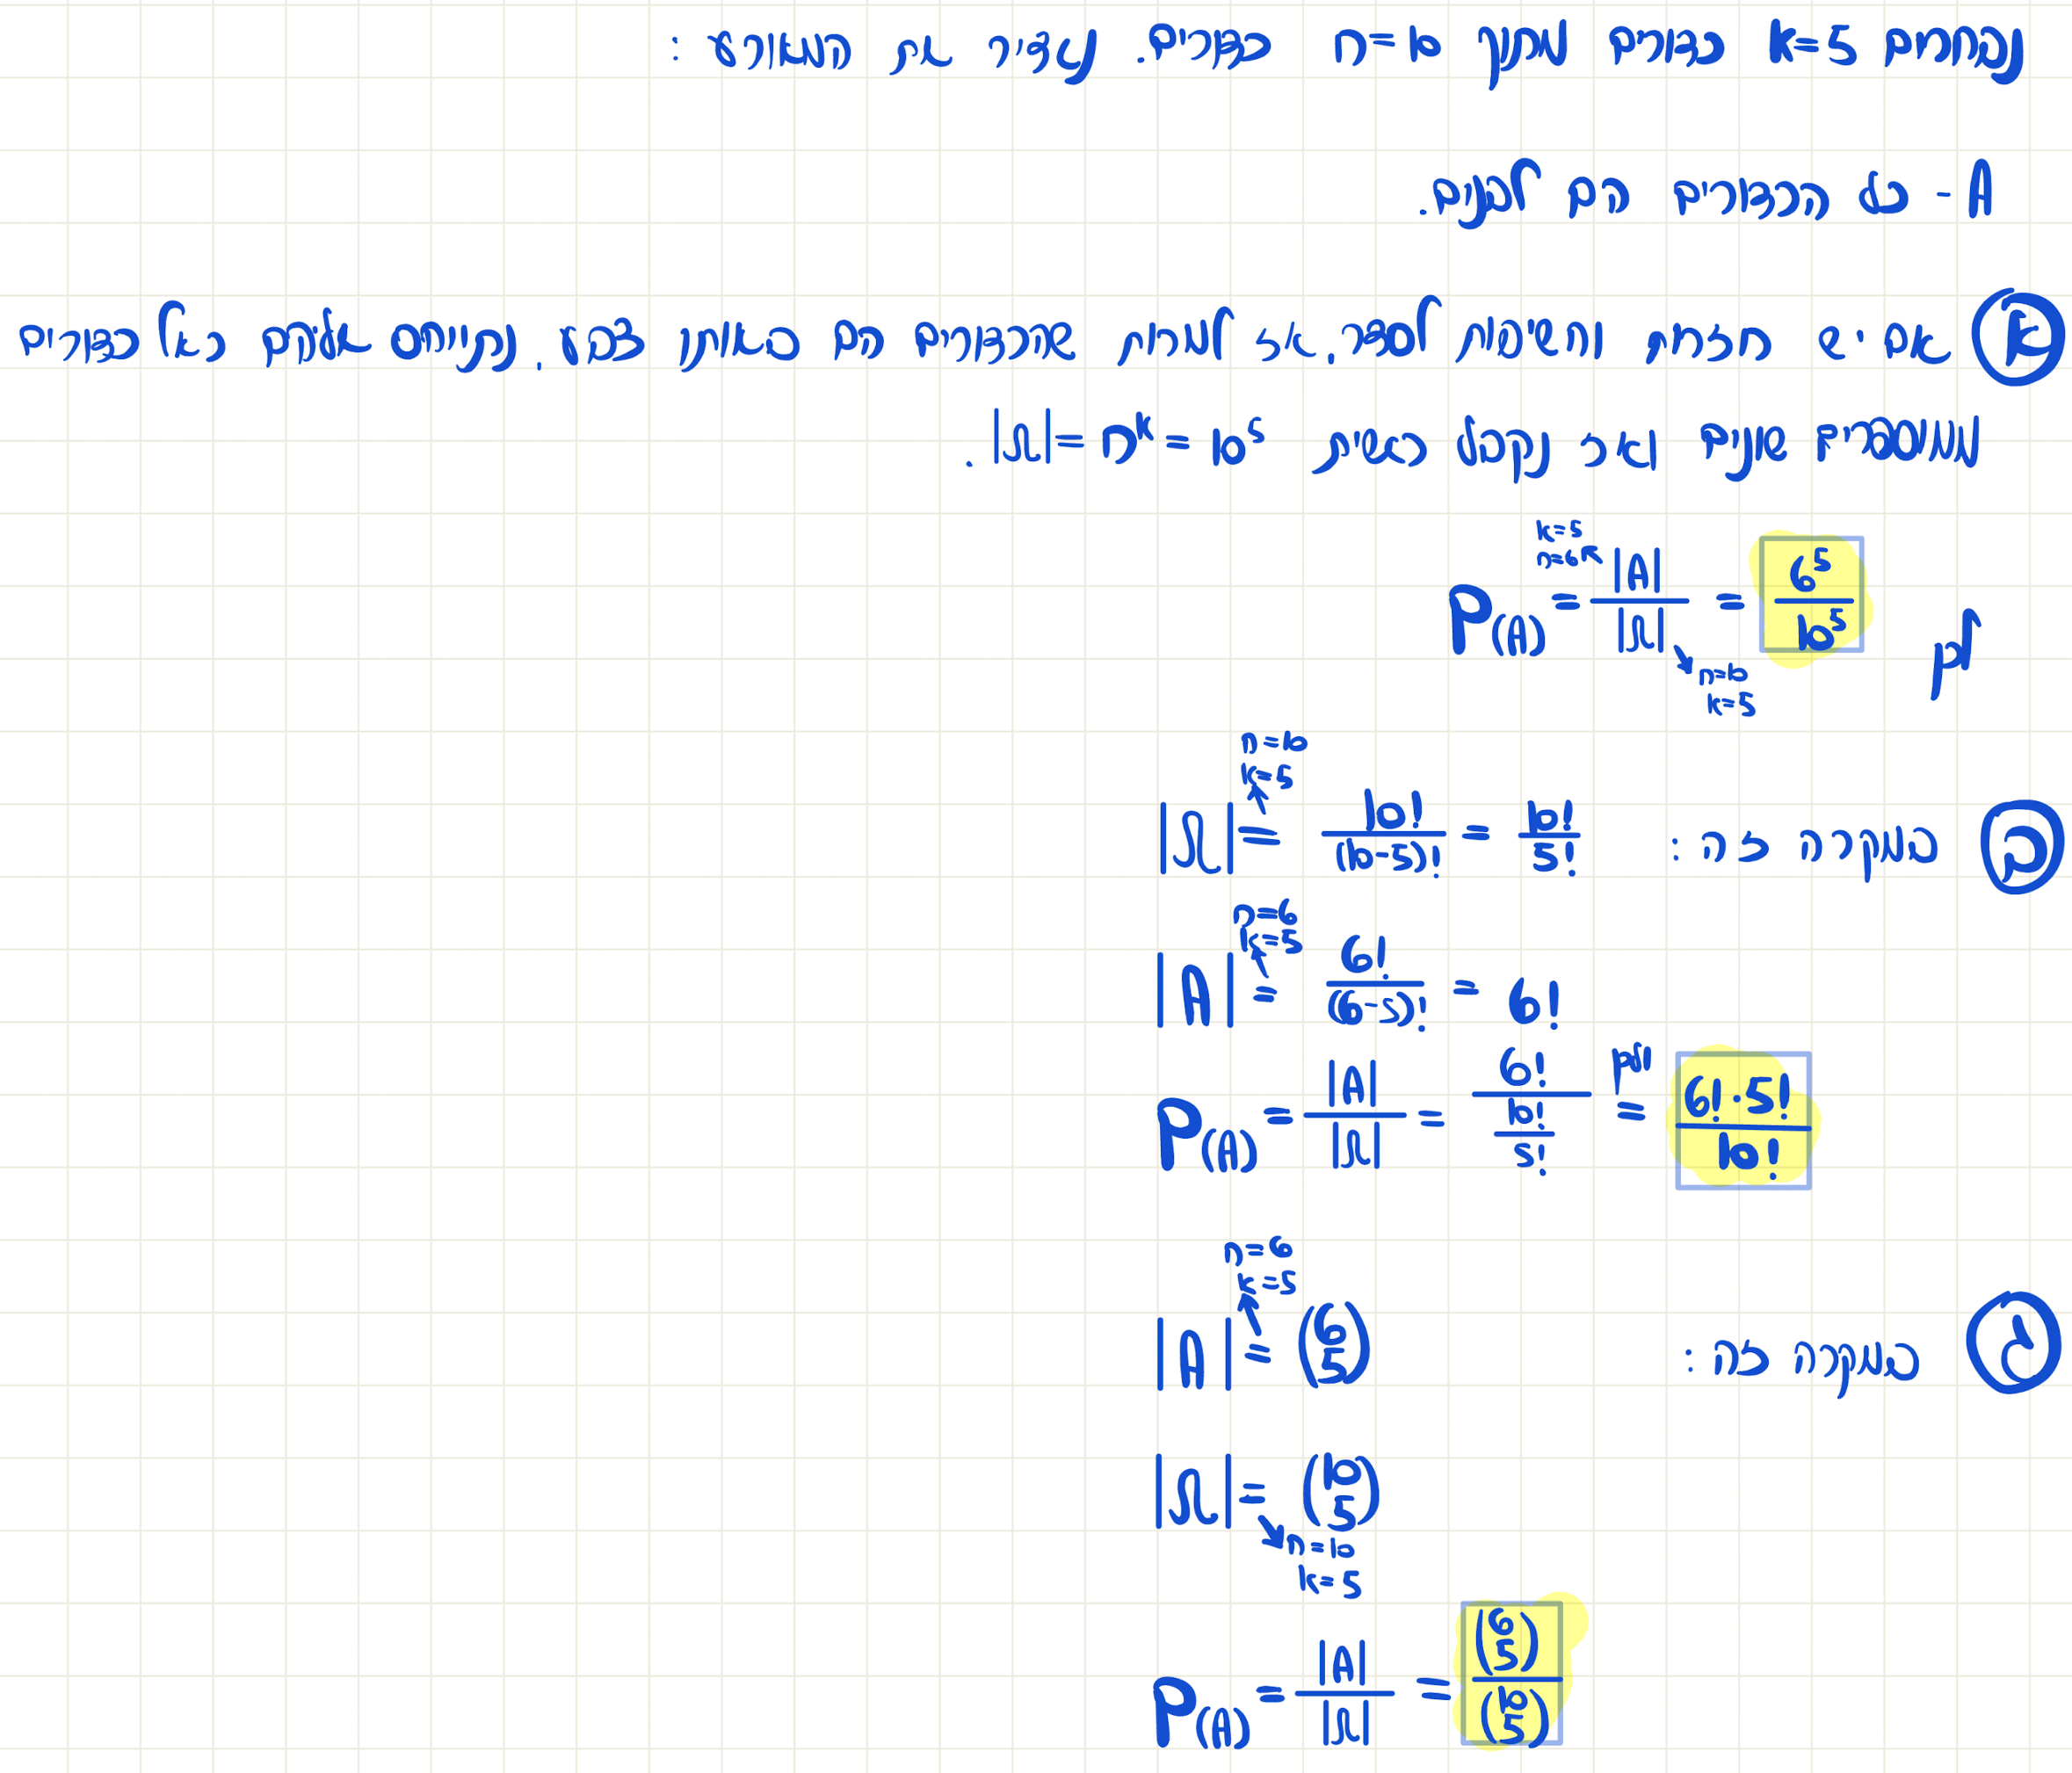 נבחרים k=5 כדורים מתוך n=10 כדורים. נגדיר את המאורע :
A - כל הכדורים הם לבנים.
א אם יש חזרות וחשיבות לסדר, אז למרות שהכדורים הם באותו צבע, נתייחס אליהם כאל כדורים
ממוספרים שונים ואז נקבל באשית |Ω| = n^k = 10^5.
k=5
n=6
לכן P(A) = |A| / |Ω| = 6^5 / 10^5
n=10
k=5
n=10
k=5
ב במקרה זה : |Ω| = 10! / (10-5)! = 10! / 5!
n=6
k=5
|A| = 6! / (6-5)! = 6!
P(A) = |A| / |Ω| = 6! / (10! / 5!) = ולכן 6!·5! / 10!
n=6
k=5
ג במקרה זה : |A| = (6 5)
|Ω| = (10 5)
n=10
k=5
P(A) = |A| / |Ω| = (6 5) / (10 5)